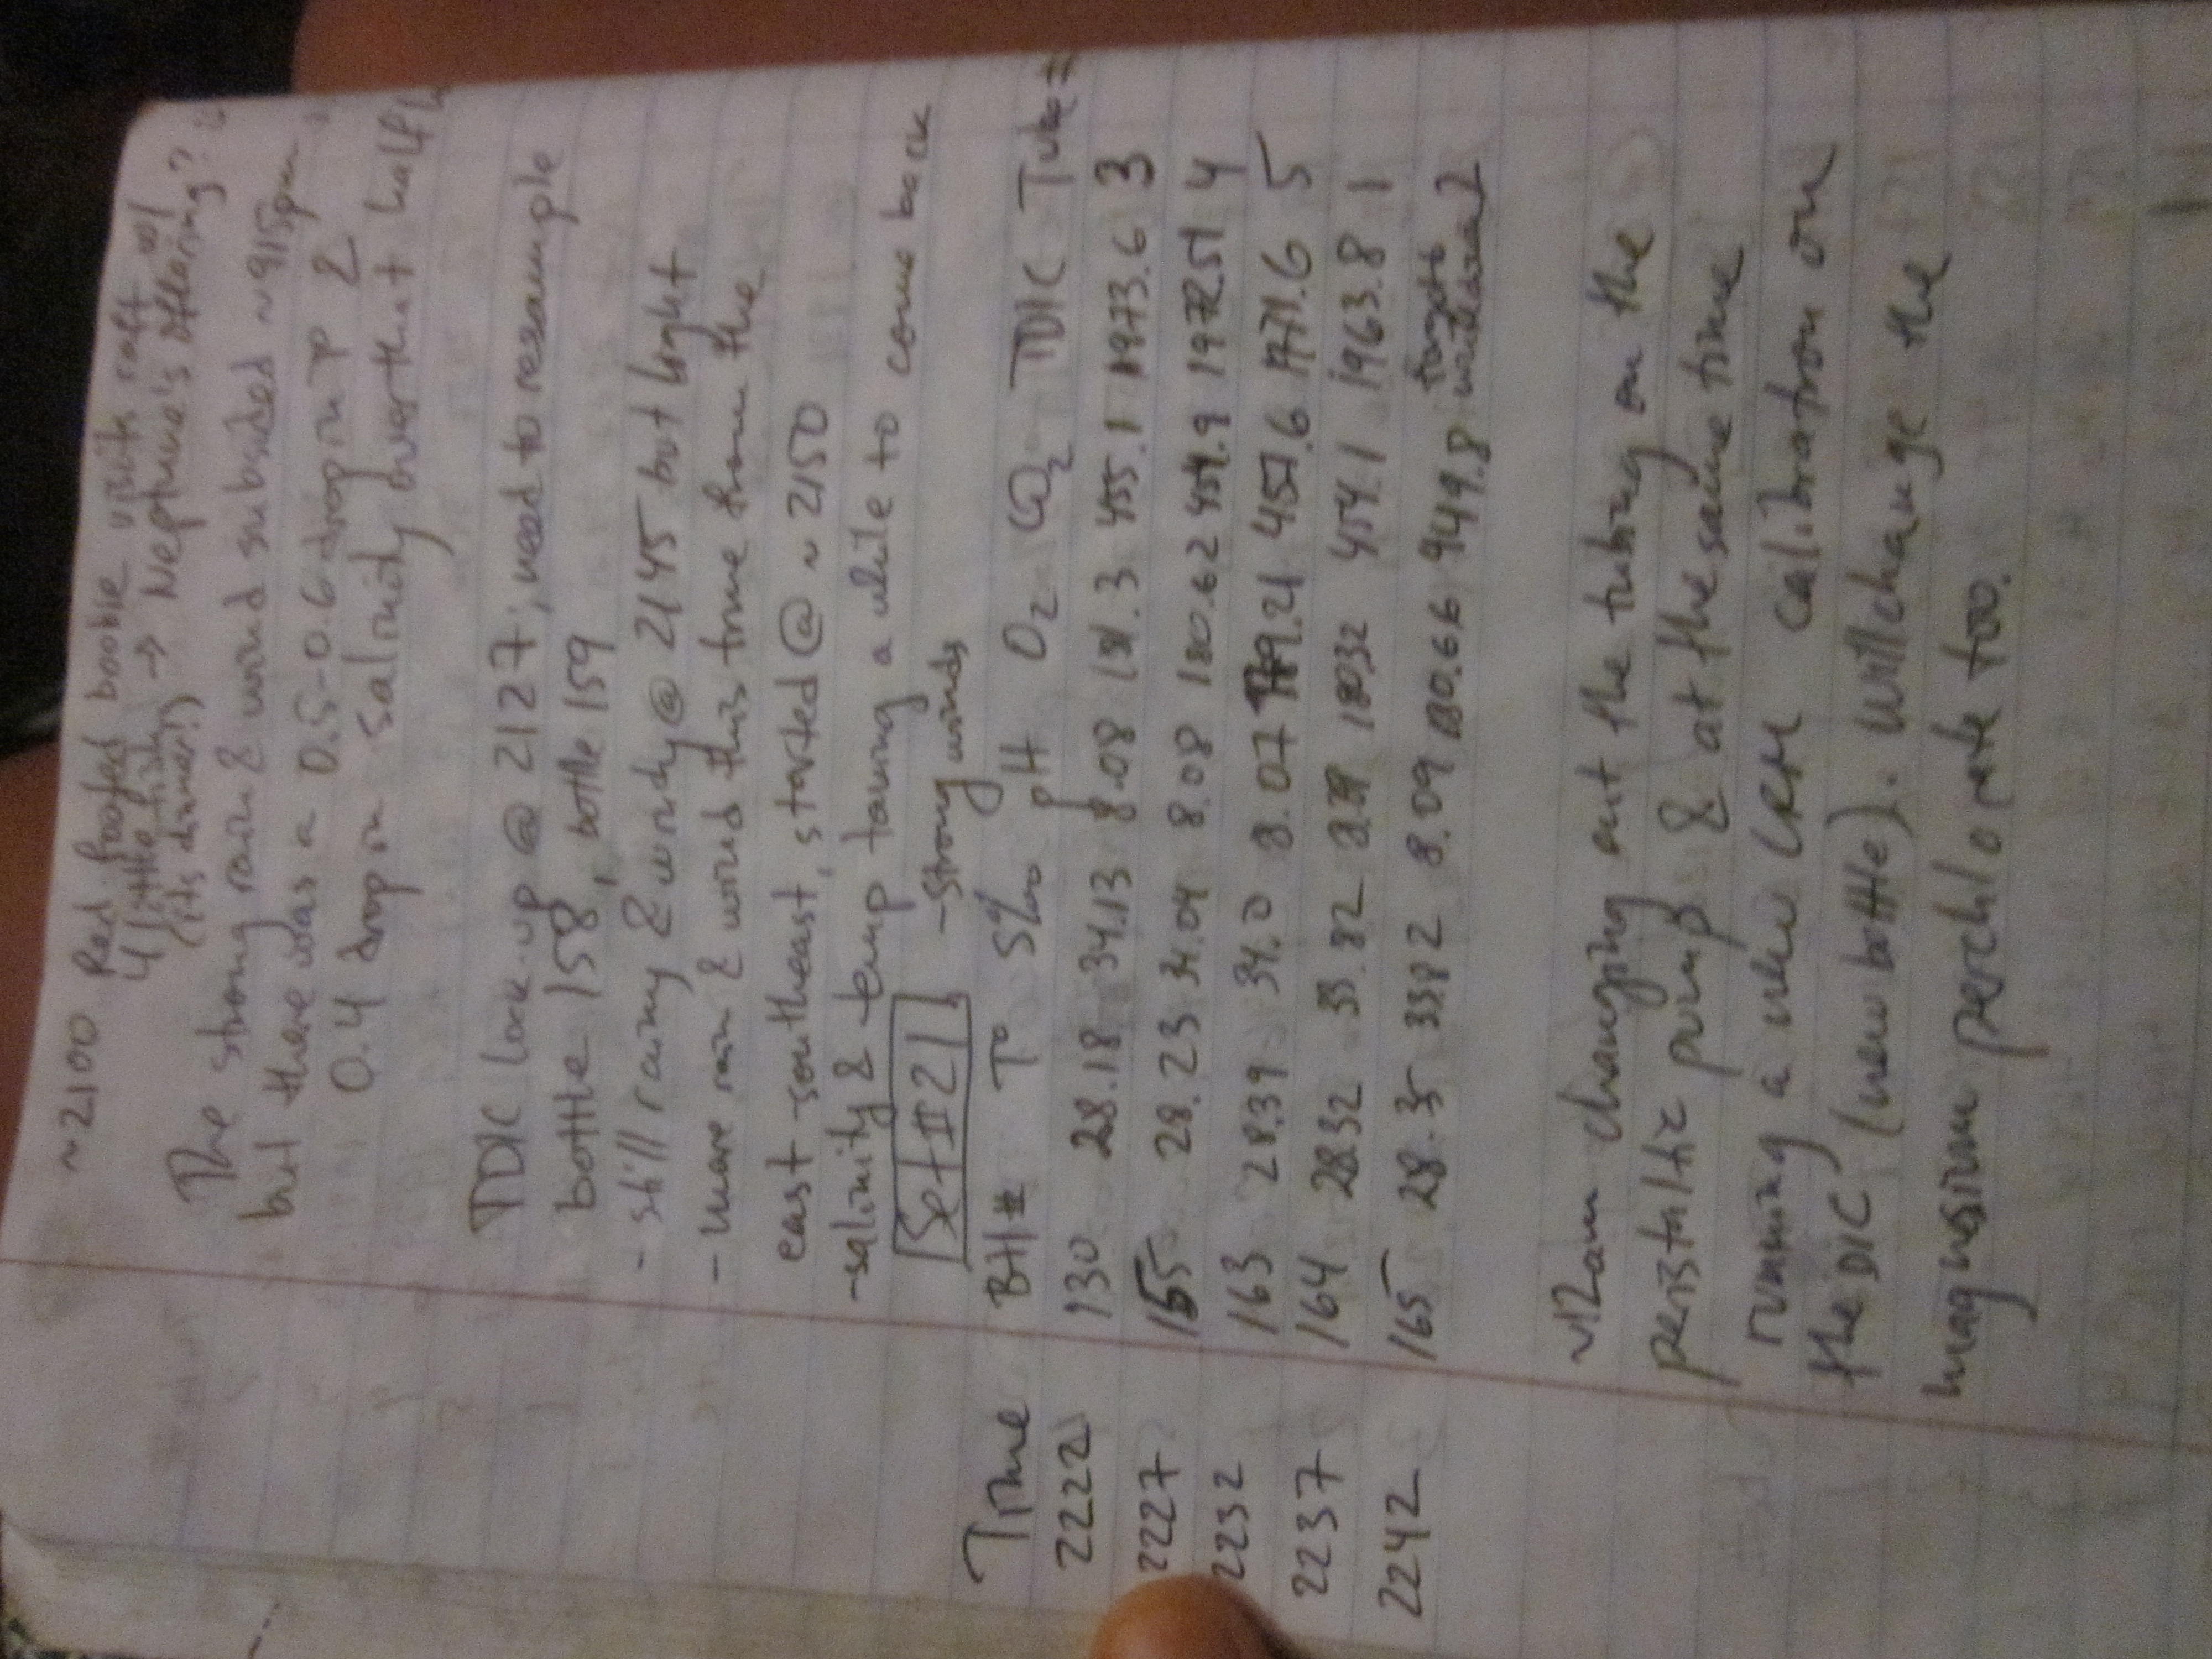 ~2100 Red footed boobie visits raft w/
4 little fish → Neptune's offering?
(its dinner!)
The strong rain & wind subsided ~915pm
but there was a 0.5-0.6 drop in P &
0.4 drop in salinity over that half
TDIC lock-up @ 2127; need to resample
bottle 158, bottle 159
- still rainy & windy @ 2145 but light
- more rain & wind this time from the
east southeast, started @ ~ 2150
- salinity & temp taking a while to come back
Set #21 - strong winds
Time Btl# T° S‰ pH O2 CO2 TDIC Tube #
2222 130 28.18 34.13 8.08 181.3 455.1 1973.6 3
2227 155 28.23 34.04 8.08 180.62 454.9 1972.51 4
2232 163 28.39 34.0 8.07 179.21 457.6 1771.6 5
2237 164 28.32 33.82 180.32 454.1 1963.8 1
2242 165 28.35 33.82 8.09 180.66 449.8 forgot to write down 2
~12am changing out the tubing on the
peristaltic pump & at the same time
running a new CRM calibration on
the DIC (new bottle). Will change the
magnesium perchlorate too.